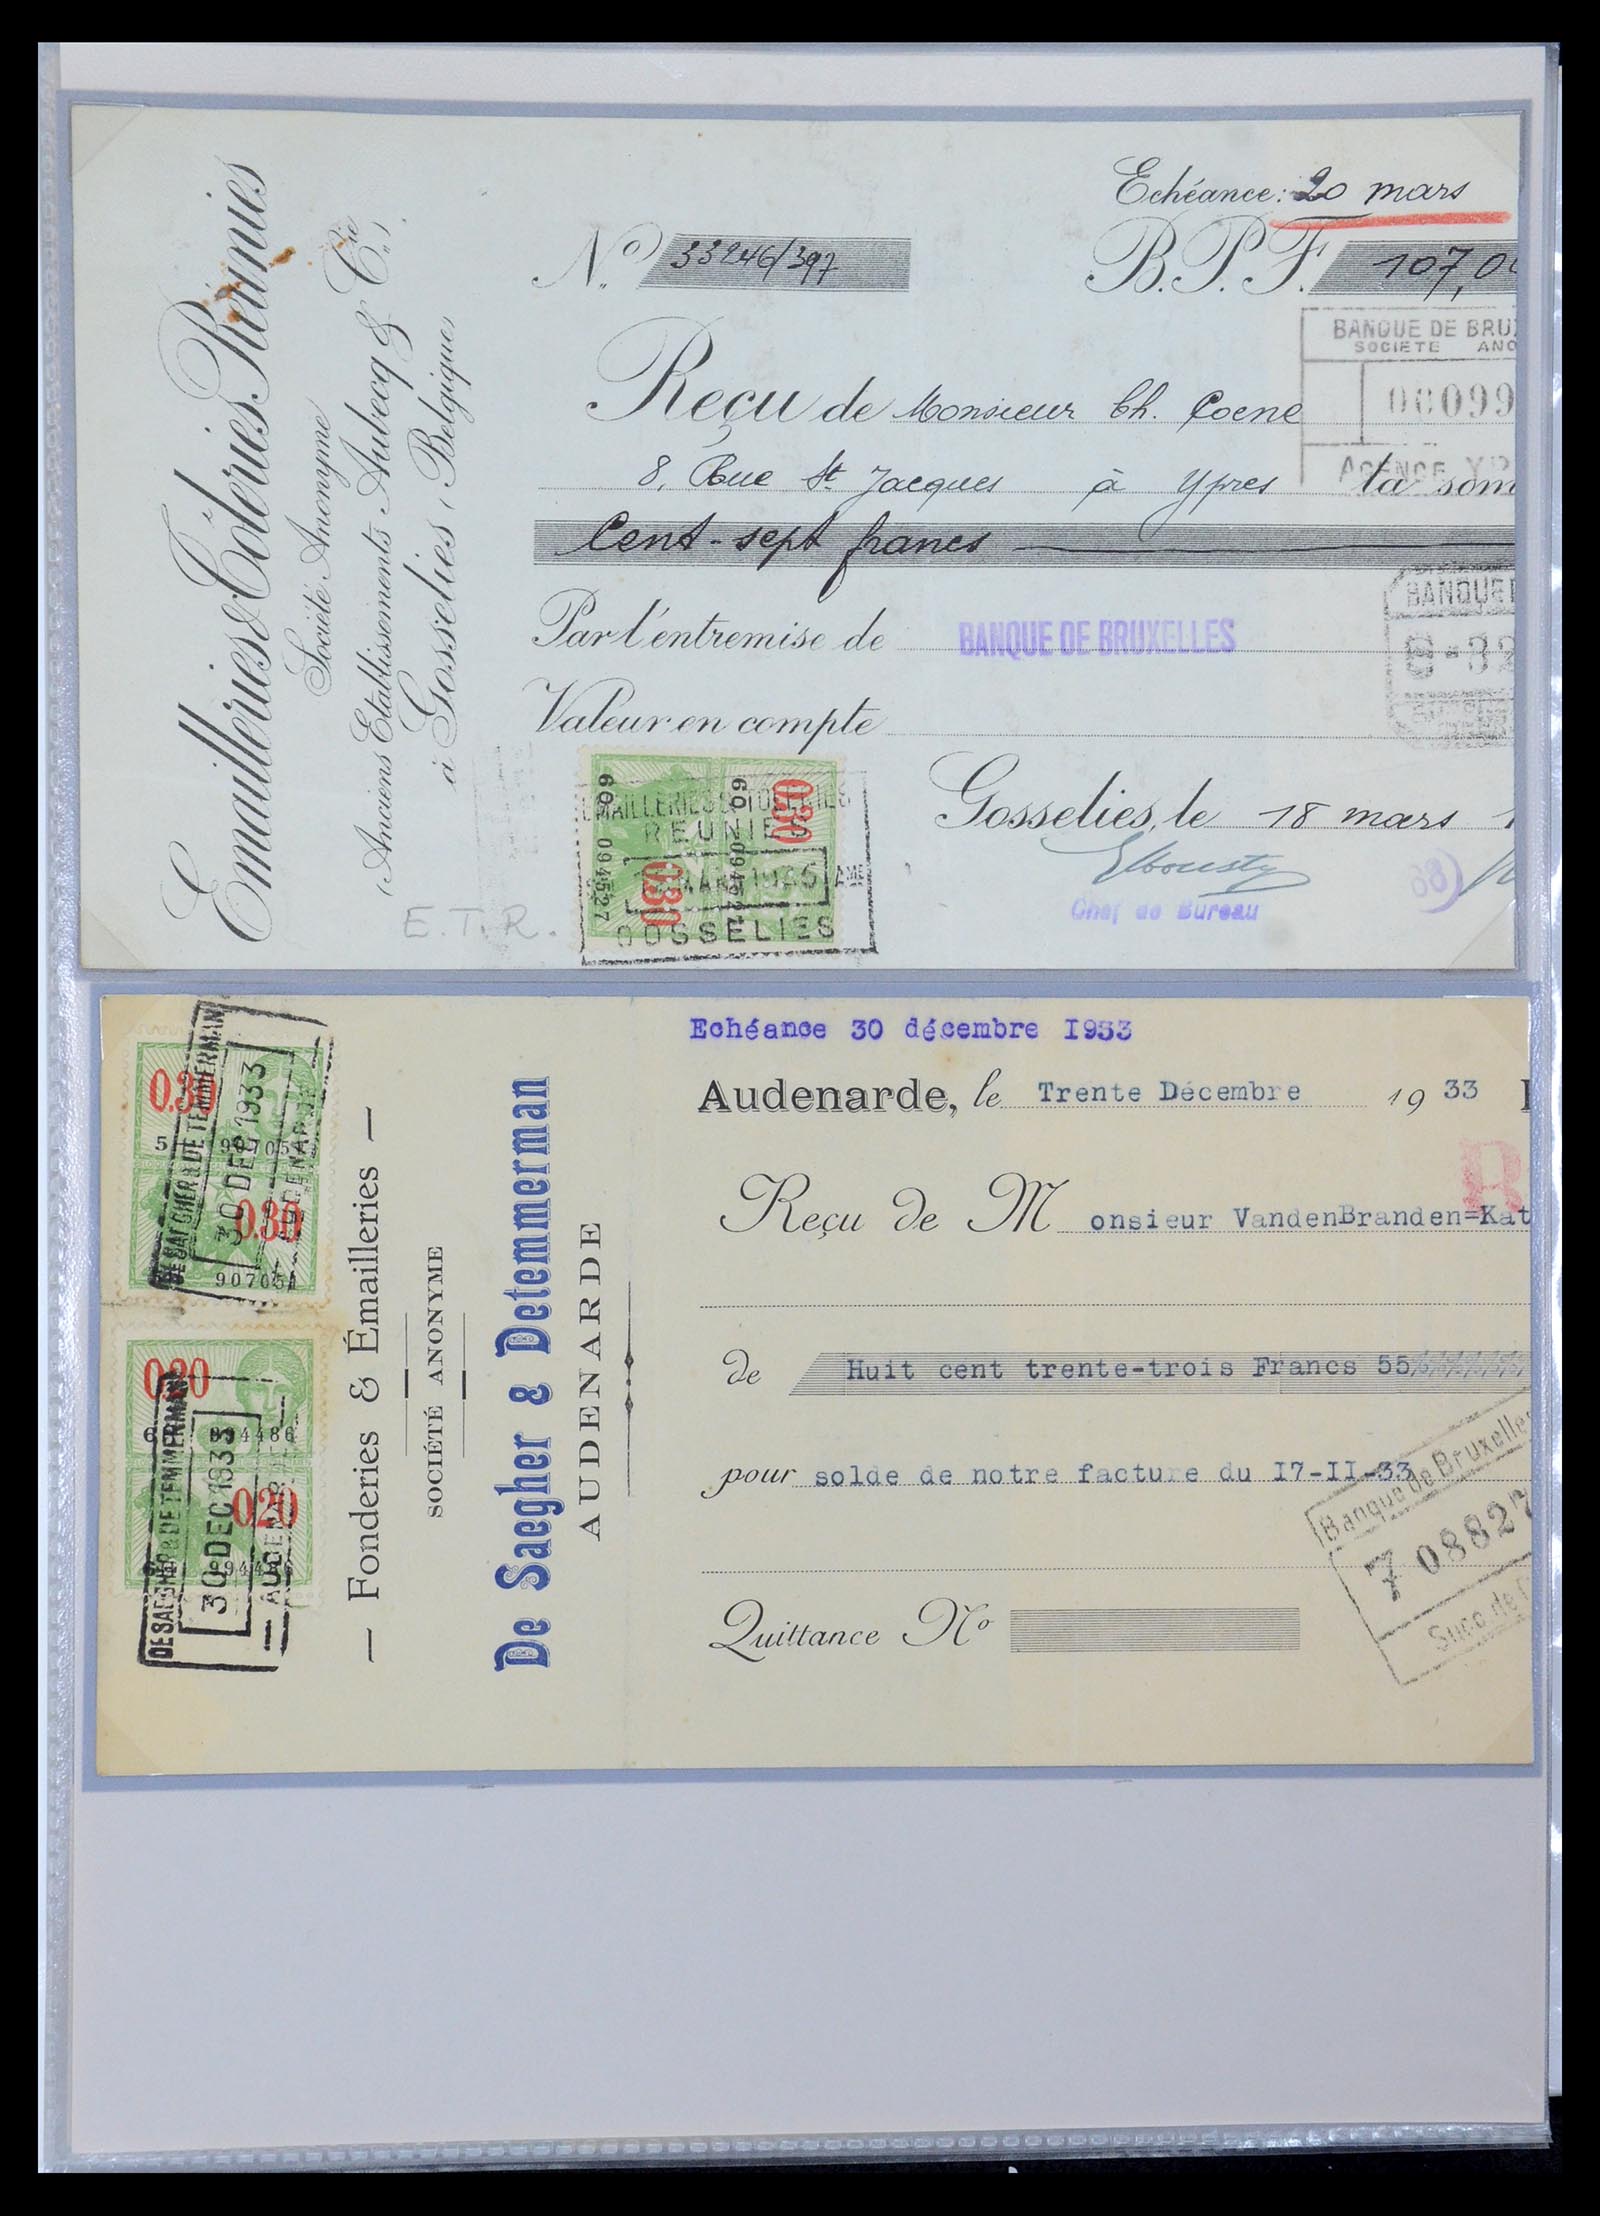 Emailleries & Tôleries Réunies
Société Anonyme
(Anciens Etablissements Aubecq & Cie)
à Gosselies (Belgique)
Echéance: 20 mars
No 33246/397
B.P.F. 107,0
BANQUE DE BRUX
SOCIETE ANO
00099
AGENCE YP
Reçu de Monsieur Ch. Coene
8, Rue St Jacques à Ypres la som
Cent-sept francs
BANQUE
Par l'entremise de BANQUE DE BRUXELLES
8-32
Valeur en compte
Gosselies, le 18 mars 1
Chef de Bureau
68)
0.30
0.30
609 094527
EMAILLERIES & TOLERIES
REUNIES
GOSSELIES
E.T.R.
Echéance 30 décembre 1933
Audenarde, le Trente Décembre 1933
Reçu de Monsieur VandenBranden=Kat
de Huit cent trente-trois Francs 55
pour solde de notre facture du 17-II-33
Quittance No
Banque de Bruxelles
7 08827
Succ de
— Fonderies & Émailleries —
SOCIÉTÉ ANONYME
De Saegher & Detemmerman
AUDENARDE
0.30
0.30
907051
DE SAEGHER & DETEMMERMAN
30 DEC 1933
AUDENARDE
0.20
0.20
DE SAEGHER & DETEMMERMAN
30 DEC 1933